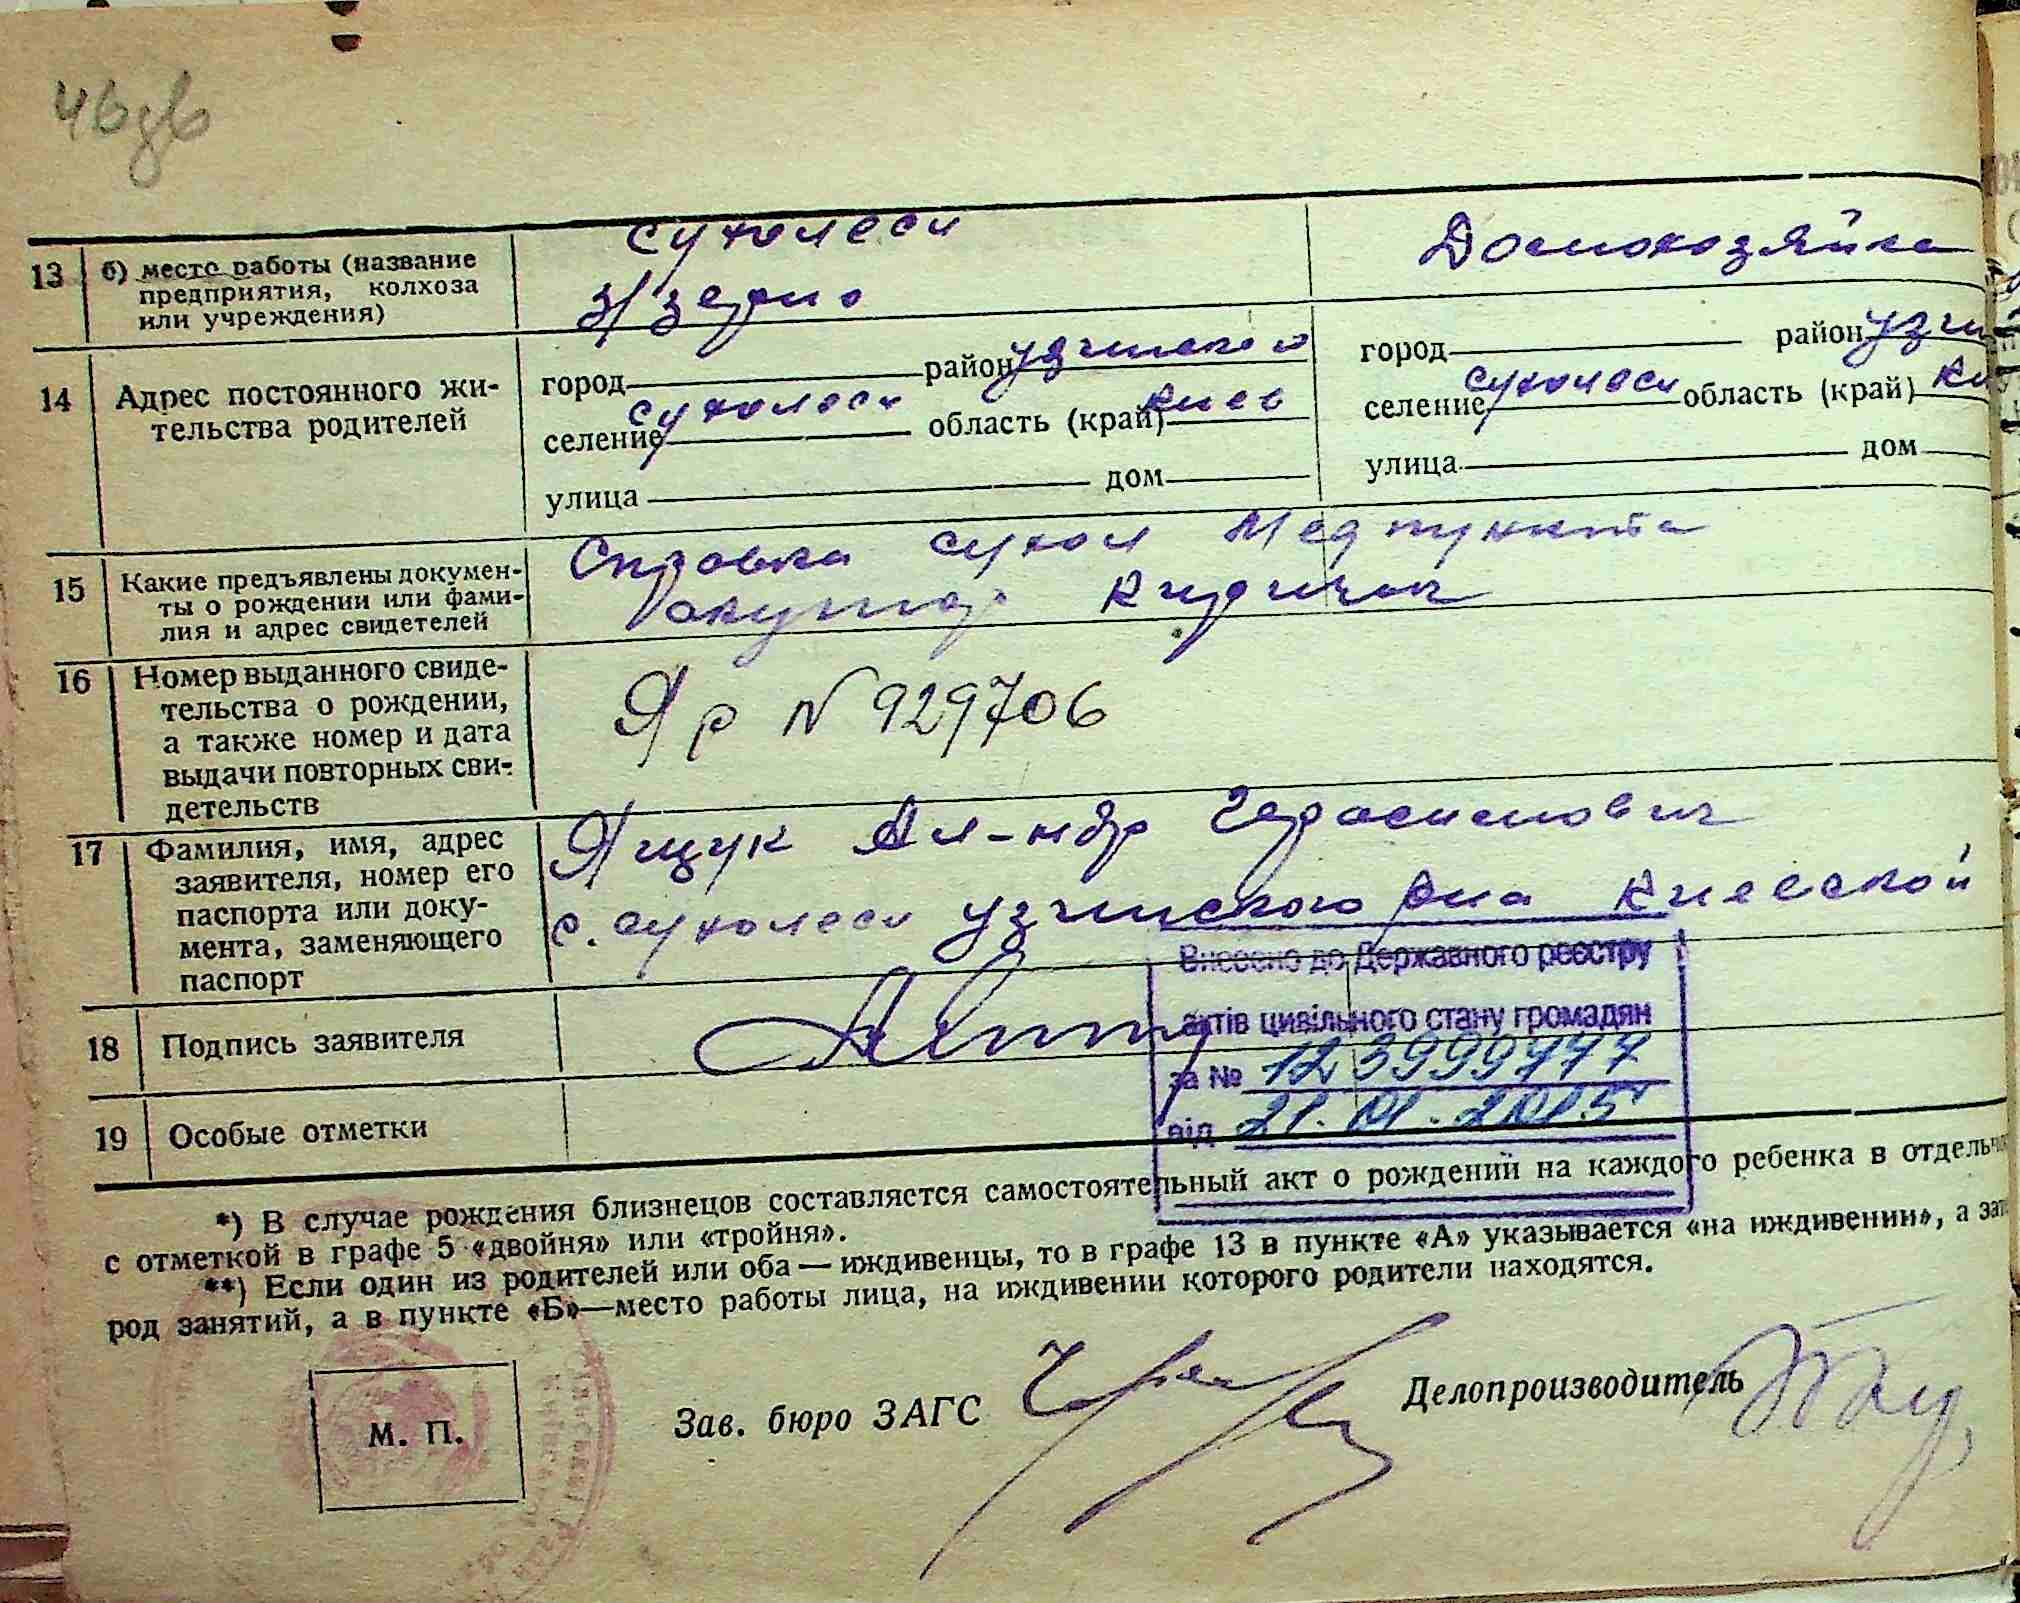 Сухолеси
Домохозяйка
13 б) место работы (название
предприятия, колхоза
или учреждения)
З/зерно
14 Адрес постоянного жи-
тельства родителей
город район Узинский
селение Сухолеси область (край) Киев
улица дом
город район Узин
селение Сухолеси область (край) Ки
улица дом
15 Какие предъявлены докумен-
ты о рождении или фами-
лия и адрес свидетелей
Справка Сухол Медпункта
16 Номер выданного свиде-
тельства о рождении,
а также номер и дата
выдачи повторных сви-
детельств
Яр N 929706
17 Фамилия, имя, адрес
заявителя, номер его
паспорта или доку-
мента, заменяющего
паспорт
Ящук Ал-ндр Герасимович
с. Сухолеси Узинского р-на Киевской
18 Подпись заявителя
19 Особые отметки
Внесено до Державного реєстру
актів цивільного стану громадян
за № 123999777
від 21.01.2015
*) В случае рождения близнецов составляется самостоятельный акт о рождений на каждого ребенка в отдельно
с отметкой в графе 5 «двойня» или «тройня».
**) Если один из родителей или оба — иждивенцы, то в графе 13 в пункте «А» указывается «на иждивении», а зап
род занятий, а в пункте «Б»—место работы лица, на иждивении которого родители находятся.
М. П.
Зав. бюро ЗАГС
Делопроизводитель